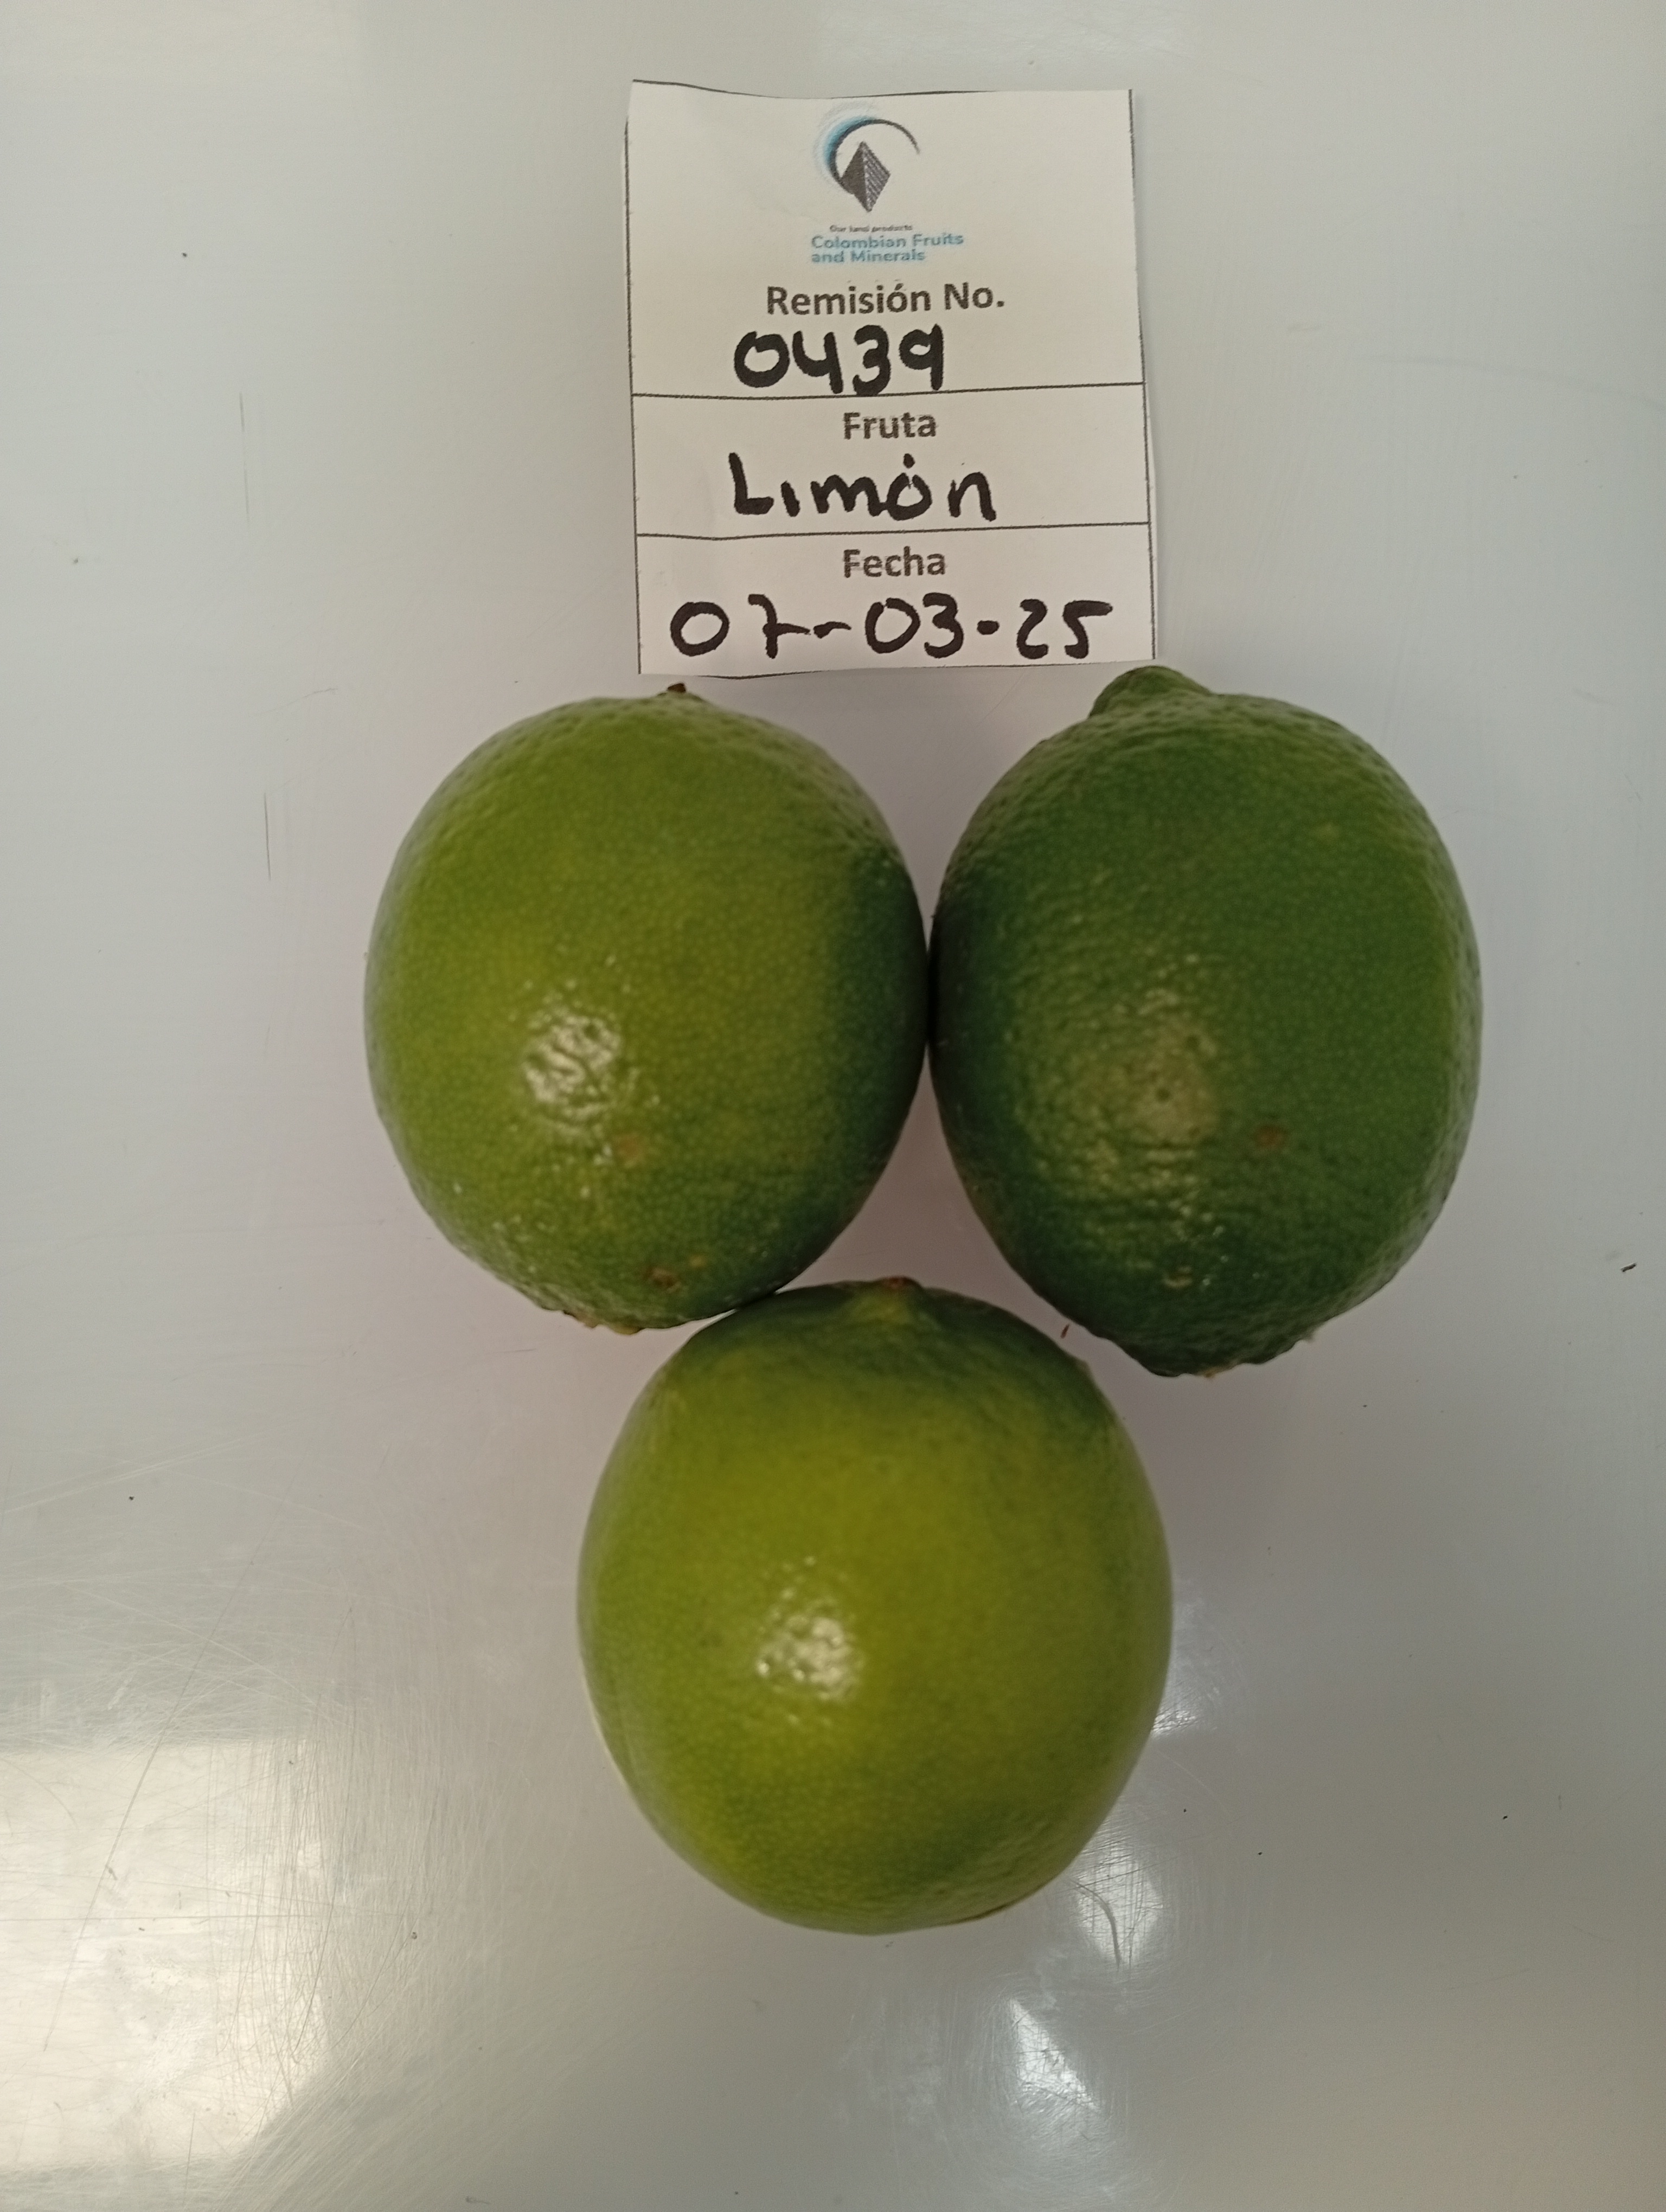 Our land products
Colombian Fruits
and Minerals
Remisión No.
0439
Fruta
Limón
Fecha
07-03-25